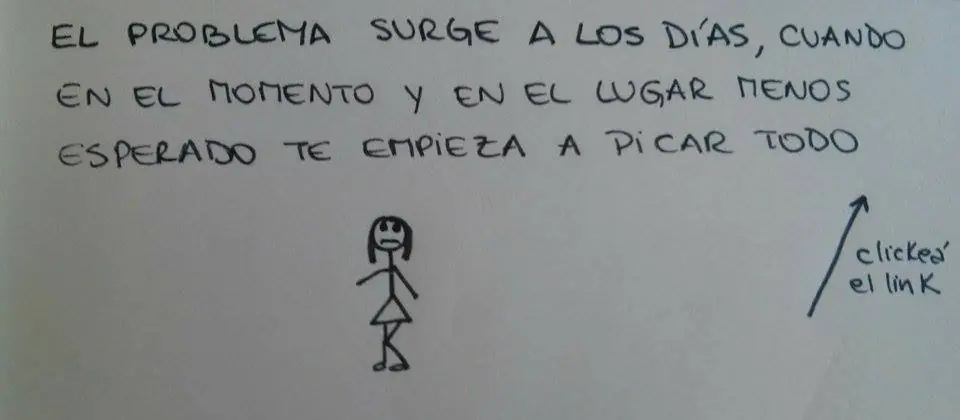 EL PROBLEMA SURGE A LOS DÍAS, CUANDO
EN EL MOMENTO Y EN EL LUGAR MENOS
ESPERADO TE EMPIEZA A PICAR TODO
clickeá
el link